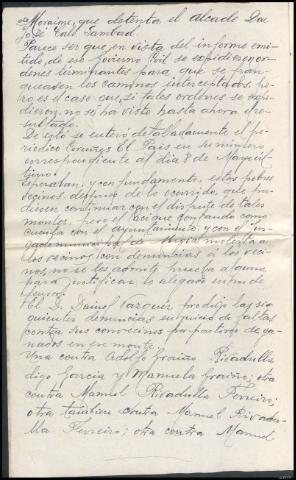 de Moraime, que detenta el alcalde Don
José Caui Sambad
Parece ser que en vista del informe emi-
tido, de ese Gobierno Civil se expidieron or-
denes terminantes para que se fran-
queasen los caminos interceptados, pe-
ro es el caso que, si tales ordenes se expi-
dieron, no se ha visto hasta ahora el re-
sultado.
De esto se enteró detalladamente el pe-
riodico Coruñes El Pais en su número
correspondiente al dia 8 de Mayo ul-
timo.
Esperaban, y con fundamento, estos pobres
vecinos, despues de lo ocurrido, que pu-
diesen continuar con el disfrute de tales
montes, pero el cacique contando como
cuenta con el ayuntamiento y con el
juzgado municipal de molesta a
los vecinos con denuncias á los veci-
nos, no se les admite prueba alguna
para justificar lo alegado en fin de
El Sr. Daniel produjo las si-
guientes denuncias en juicio de faltas
contra sus convecinos por pastoreo de ga-
nados en ese monte.
Una contra Adolfo Rivadulla
digo Garcia y Manuela; otra
contra Manuel Rivadulla Ferreiro;
otra tambien contra Manuel Rivadu-
lla Ferreiro; otra contra Manuel